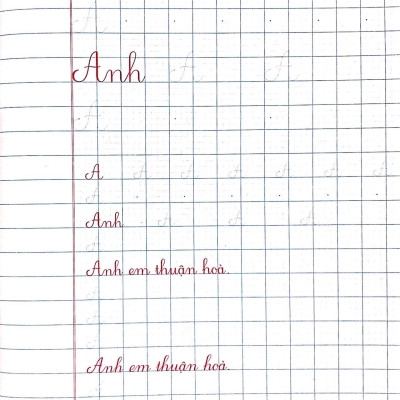 Anh A A
A
A A A A A A A
A
Anh A A A
Anh em thuận hoà.
Anh em thuận hoà.